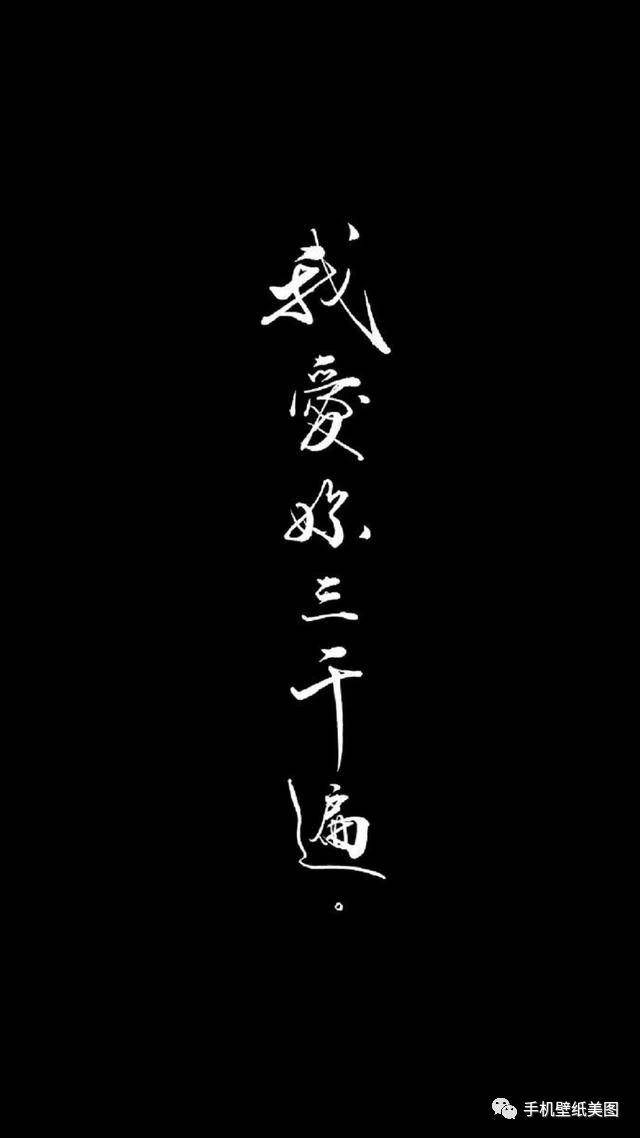 我愛妳三千遍。
手机壁纸美图